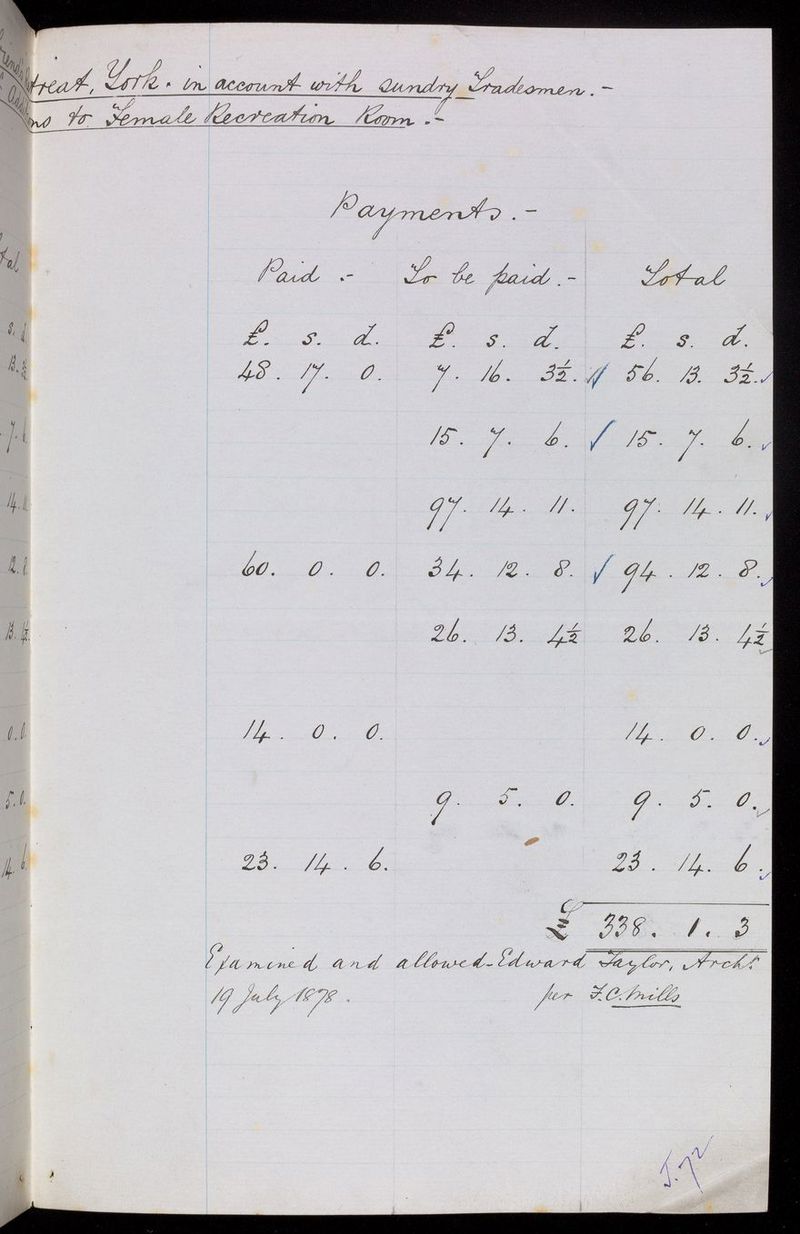 treat, York. in account with sundry Tradesmen.-
ns to Female Recreation Room.-
Payments.-
Paid.- To be paid.- Total
£. s. d. £. s. d. £. s. d.
48. 17. 0. 7. 16. 3½. 56. 13. 3½.
15. 7. 6. 15. 7. 6.
97. 14. 11. 97. 14. 11.
60. 0. 0. 34. 12. 8. 94. 12. 8.
26. 13. 4½ 26. 13. 4½
14. 0. 0. 14. 0. 0.
9. 5. 0. 9. 5. 0.
23. 14. 6. 23. 14. 6.
£ 338. 1. 3
Examined and allowed-Edward Taylor, Archt.
19 July 1878. per F.C. Mills
J.72